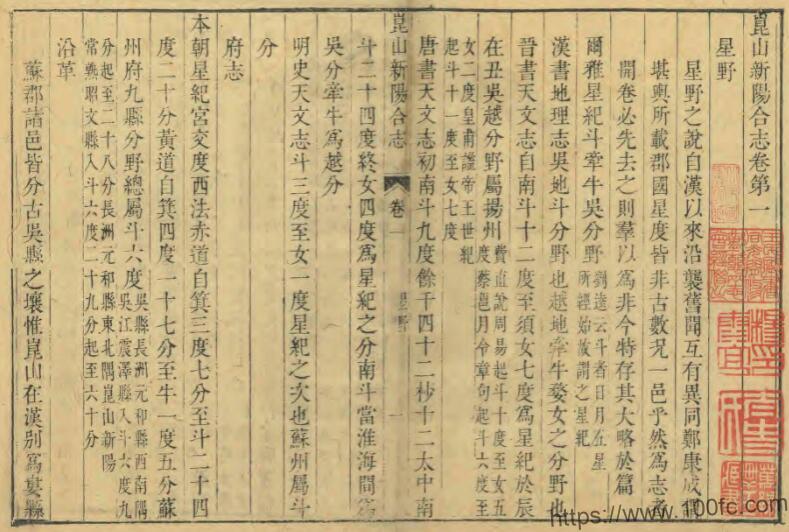 崑山新陽合志卷第一
星野
星野之說自漢以來沿襲舊聞互有異同鄭康成謂
堪輿所載郡國星度皆非古數況一邑乎然爲志者
開卷必先去之則羣以爲非今特存其大略於篇
爾雅星紀斗牽牛吳分野
劉逵云斗者日月五星
所經始故謂之星紀
漢書地理志吳地斗分野也越地牽牛婺女之分野也
晉書天文志自南斗十二度至須女七度爲星紀於辰
在丑吳越分野屬揚州
費直說周易起斗十度至女五
度蔡邕月令章句起斗六度至
女二度皇甫謐帝王世紀
起斗十一度至女七度
唐書天文志初南斗九度餘千四十二杪十二太中南
崑山新陽合志
卷一
星野
一
斗二十四度終女四度爲星紀之分南斗當淮海間爲
吳分牽牛爲越分
明史天文志斗三度至女一度星紀之次也蘇州屬斗
分
府志
本朝星紀宮交度西法赤道自箕三度七分至斗二十四
度二十分黃道自箕四度一十七分至牛一度五分蘇
州府九縣分野總屬斗六度
吳縣長洲元和縣西南隅
吳江震澤縣入斗六度九
分起至二十八分長洲元和縣東北隅崑山新陽
常熟昭文縣入斗六度二十九分起至六十分
沿革
蘇郡諸邑皆分古吳縣之壤惟崑山在漢別爲婁縣
https://www.100fc.com